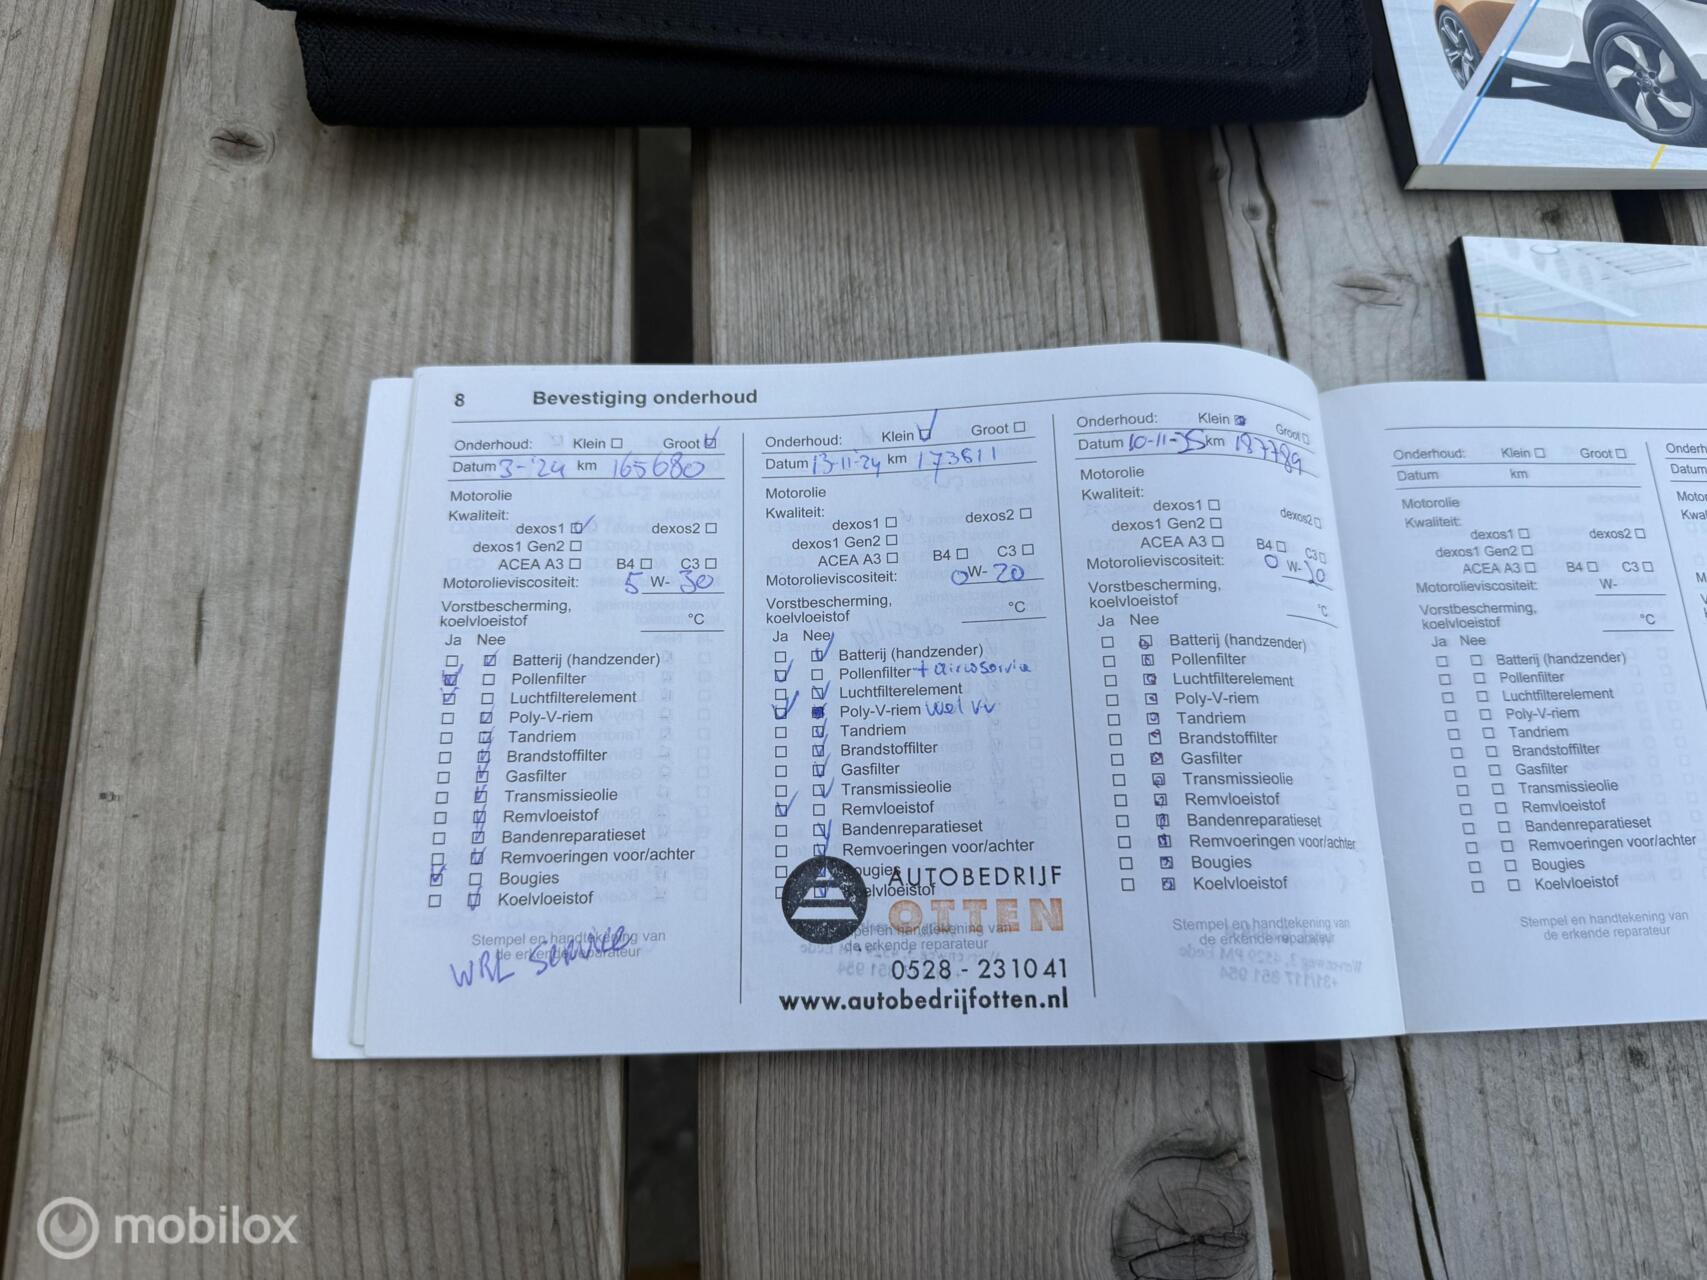 8 Bevestiging onderhoud
Onderhoud: Klein Groot
Datum 3-'24 km 165680
Motorolie
Kwaliteit:
dexos1 dexos2
dexos1 Gen2
ACEA A3 B4 C3
Motorolieviscositeit: 5 W- 30
Vorstbescherming,
koelvloeistof °C
Ja Nee
Batterij (handzender)
Pollenfilter
Luchtfilterelement
Poly-V-riem
Tandriem
Brandstoffilter
Gasfilter
Transmissieolie
Remvloeistof
Bandenreparatieset
Remvoeringen voor/achter
Bougies
Koelvloeistof
Stempel en handtekening van
de erkende reparateur
WRL Service
Onderhoud: Klein Groot
Datum 13-11-'24 km 173611
Motorolie
Kwaliteit:
dexos1 dexos2
dexos1 Gen2
ACEA A3 B4 C3
Motorolieviscositeit: 0 W- 20
Vorstbescherming,
koelvloeistof °C
Ja Nee
Batterij (handzender)
Pollenfilter + aircoservice
Luchtfilterelement
Poly-V-riem wel vv
Tandriem
Brandstoffilter
Gasfilter
Transmissieolie
Remvloeistof
Bandenreparatieset
Remvoeringen voor/achter
Bougies
Koelvloeistof
AUTOBEDRIJF
OTTEN
Stempel en handtekening van
de erkende reparateur
0528 - 231041
www.autobedrijfotten.nl
Onderhoud: Klein Groot
Datum 10-11-25 km 187789
Motorolie
Kwaliteit:
dexos1 dexos2
dexos1 Gen2
ACEA A3 B4 C3
Motorolieviscositeit: 0 W- 20
Vorstbescherming,
koelvloeistof °C
Ja Nee
Batterij (handzender)
Pollenfilter
Luchtfilterelement
Poly-V-riem
Tandriem
Brandstoffilter
Gasfilter
Transmissieolie
Remvloeistof
Bandenreparatieset
Remvoeringen voor/achter
Bougies
Koelvloeistof
Stempel en handtekening van
de erkende reparateur
Onderhoud: Klein Groot
Datum km
Motorolie
Kwaliteit:
dexos1 dexos2
dexos1 Gen2
ACEA A3 B4 C3
Motorolieviscositeit: W-
Vorstbescherming,
koelvloeistof °C
Ja Nee
Batterij (handzender)
Pollenfilter
Luchtfilterelement
Poly-V-riem
Tandriem
Brandstoffilter
Gasfilter
Transmissieolie
Remvloeistof
Bandenreparatieset
Remvoeringen voor/achter
Bougies
Koelvloeistof
Stempel en handtekening van
de erkende reparateur
mobilox